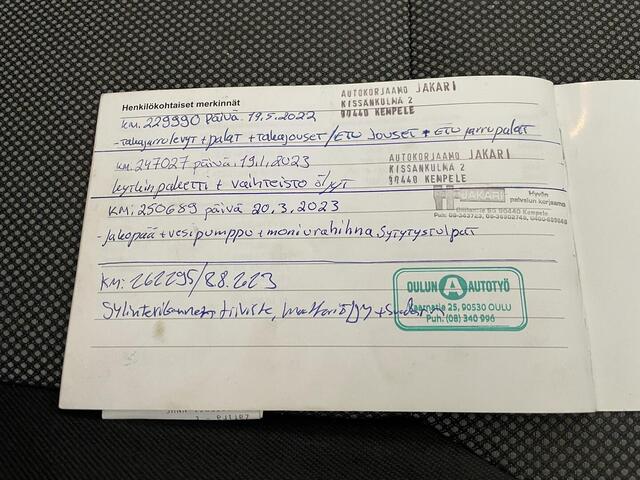 Henkilökohtaiset merkinnät
AUTOKORJAAMO JAKARI
KISSANKULMA 2
90440 KEMPELE
KM. 229990 Päivä. 19.5.2022
-takajarrulevyt + palat + takajouset / ETU JOUSET + ETU jarrupalat
KM. 247027 päivä. 19.1.2023
AUTOKORJAAMO JAKARI
KISSANKULMA 2
90440 KEMPELE
kytkinpaketti + vaihteisto öljyt
JAKARI
Hyvän palvelun korjaamo
90440 Kempele
KM: 250689 päivä 20.3.2023
-jakopää + vesipumppu + moniurahihna Sytytystulpat
KM: 262295/8.8.2023
OULUN A AUTOTYÖ
Kaarnatie 25, 90530 OULU
Puh. (08) 340 996
Sylinterikannen tiiviste, moottoriöljy + suodatin